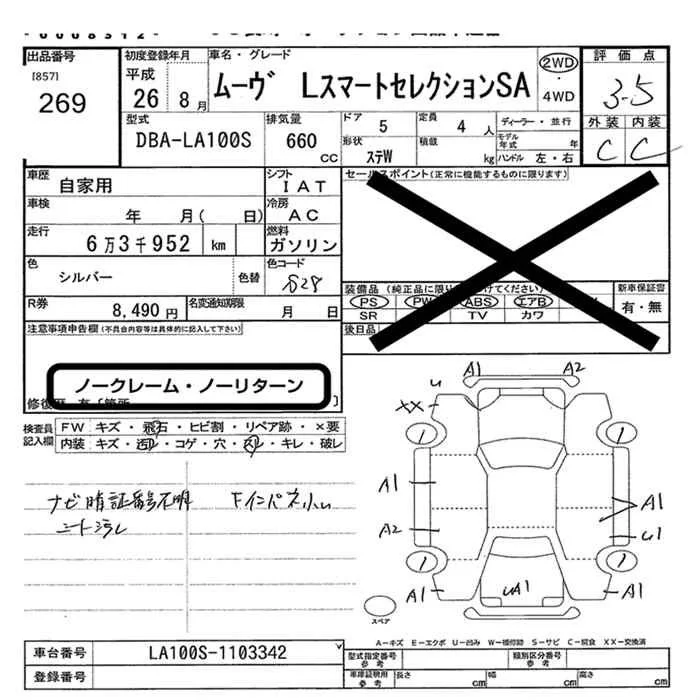 出品番号
[857]
269
初度登録年月
平成
26 8月
車名・グレード
ムーヴ LスマートセレクションSA
2WD
・
4WD
評価点
3.5
外装 内装
C C
型式
DBA-LA100S
排気量
660
CC
ドア 5
定員 4 人
ディーラー・並行
形状
ステW
積載
kg
モデル年式 年
ハンドル 左・右
車歴
自家用
シフト
IAT
セールスポイント(正常に機能するものに限ります)
車検
年 月( 日)
冷房
AC
走行
6万3千952 km
燃料
ガソリン
色
シルバー
色替
色コード
S28
装備品(純正品に限り
けてください)
新車保証書
PS PW ABS エアB
有・無
SR TV カワ
後日品
R券
8,490円
名変通知期限
月 日
注意事項申告欄(不具合内容等は具体的に記入して下さい)
ノークレーム・ノーリターン
検査員記入欄
FW キズ・飛石・ヒビ割・リペア跡・×要
内装 キズ・汚れ・コゲ・穴・スレ・キレ・破レ
ナビ暗証番号不明
シートヨゴレ
Fインパネ小U
A1 A2
U
XX
1 1
A1 A1
A2 U1
1 1
A1 UA1 A1
スペア
A−キズ E−エクボ U−凹み W−補修跡 S−サビ C−腐食 XX−交換済
車台番号
LA100S-1103342
登録番号
型式指定番号
参考
類別区分番号
参考
車庫証明用
参考
長さ cm
幅 cm
高さ cm